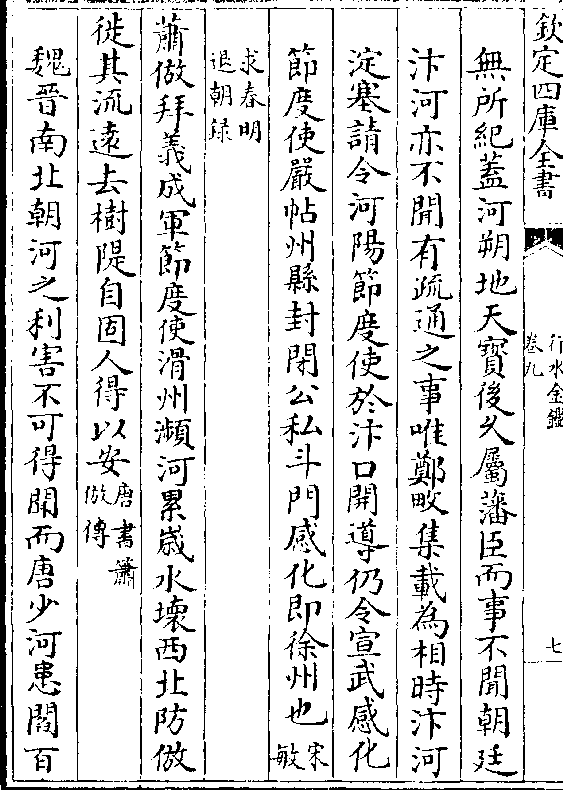 欽定四庫全書
行水金鑑
卷九
七
無所紀蓋河朔地天寶後久屬藩臣而事不聞朝廷
汴河亦不聞有疏通之事唯鄭畋集載為相時汴河
淀塞請令河陽節度使於汴口開導仍令宣武感化
節度使嚴帖州縣封閉公私斗門感化即徐州也宋敏
求春明退朝録
蕭倣拜義成軍節度使滑州瀕河累嵗水壞西北防倣
徙其流逺去樹隄自固人得以安唐書蕭倣傳
魏晉南北朝河之利害不可得聞而唐少河患閻百